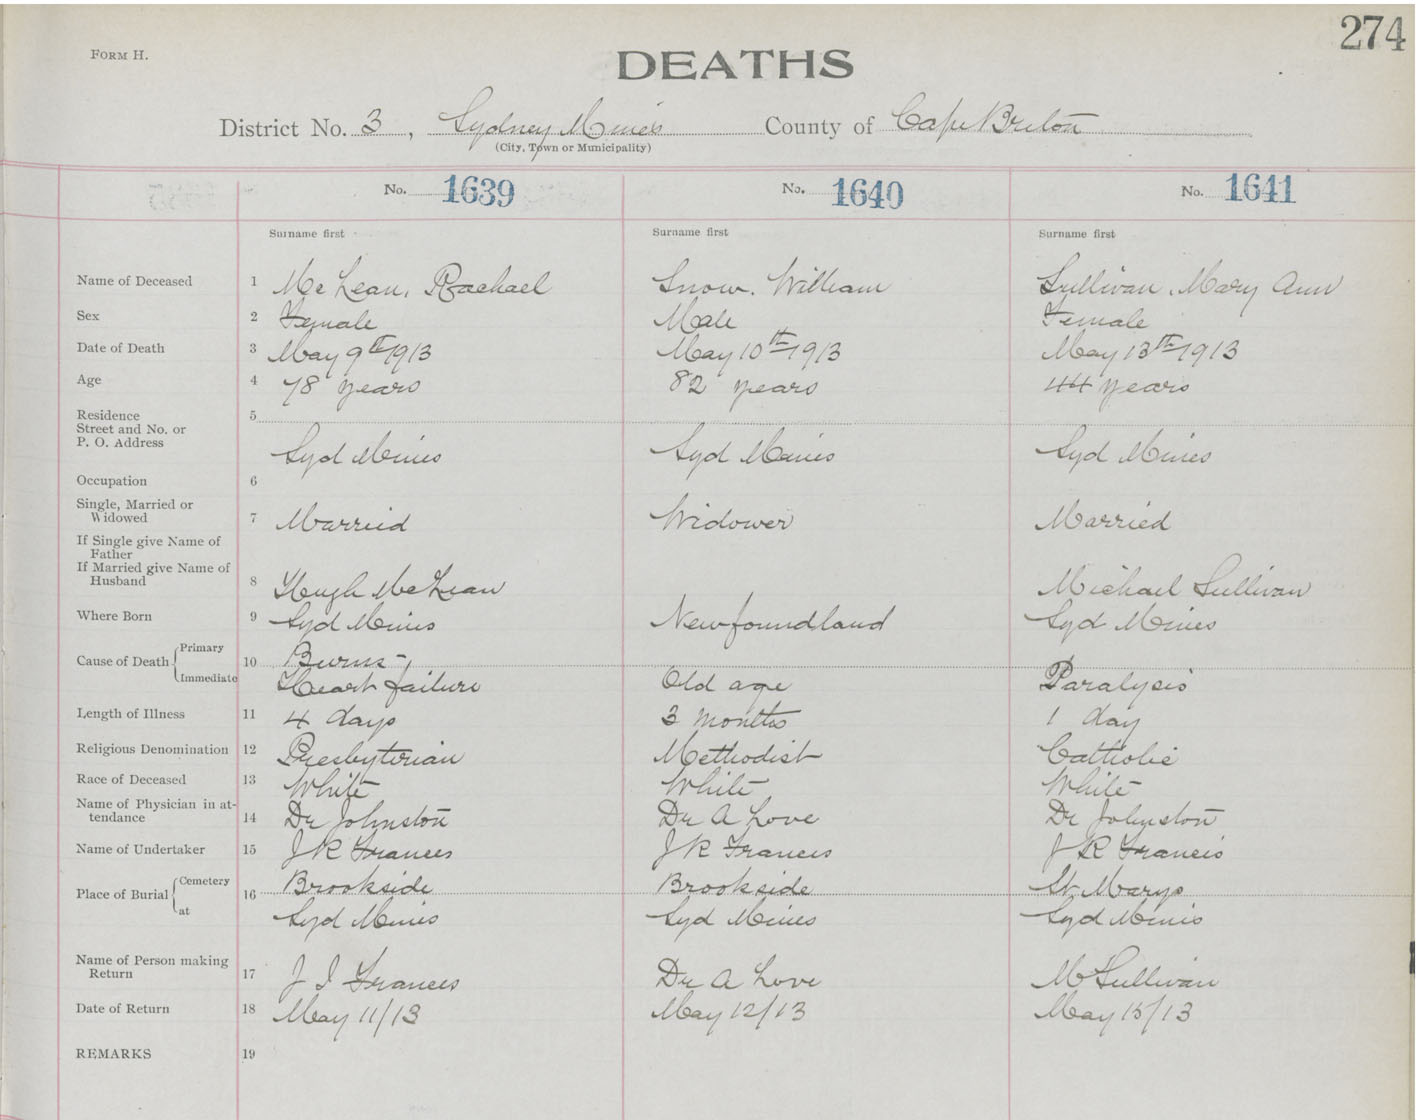 274
FORM H.
DEATHS
District No. 3, Sydney Mines County of Cape Breton
(City, Town or Municipality)
No. 1639 No. 1640 No. 1641
Surname first Surname first Surname first
Name of Deceased 1 McLean, Rachael Snow, William Sullivan, Mary Ann
Sex 2 Female Male Female
Date of Death 3 May 9th 1913 May 10th 1913 May 13th 1913
Age 4 78 years 82 years 44 years
Residence 5
Street and No. or
P. O. Address
Syd Mines Syd Mines Syd Mines
Occupation 6
Single, Married or
Widowed 7 Married Widower Married
If Single give Name of
Father
If Married give Name of
Husband 8 Hugh McLean Michael Sullivan
Where Born 9 Syd Mines Newfoundland Syd Mines
Cause of Death Primary 10 Burns -
Immediate Heart failure Old age Paralysis
Length of Illness 11 4 days 3 months 1 day
Religious Denomination 12 Presbyterian Methodist Catholic
Race of Deceased 13 White White White
Name of Physician in at-
tendance 14 Dr Johnston Dr A Love Dr Johnston
Name of Undertaker 15 J R Frances J R Francis J R Francis
Place of Burial Cemetery 16 Brookside Brookside St Marys
at Syd Mines Syd Mines Syd Mines
Name of Person making
Return 17 J I Frances Dr A Love M Sullivan
Date of Return 18 May 11/13 May 12/13 May 15/13
REMARKS 19